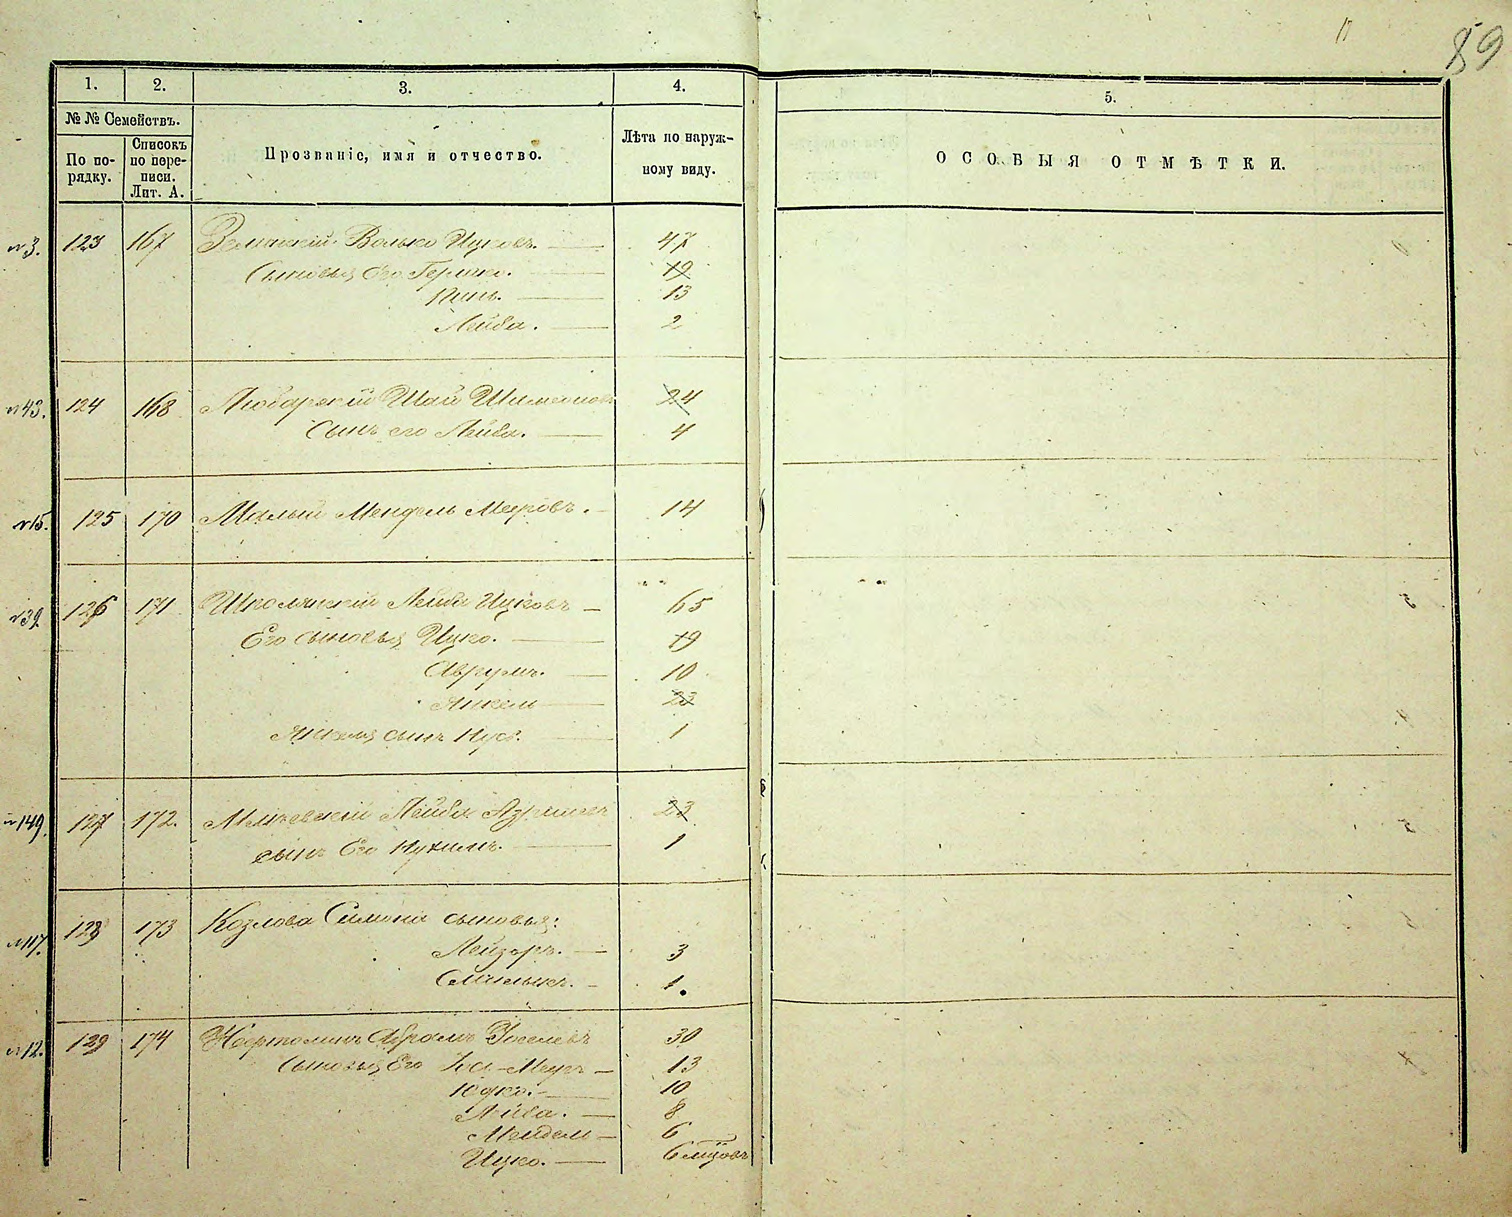 89
1. 2. 3. 4. 5.
№ № Семействъ.
По порядку.
Списокъ по переписи. Лит. А.
Прозваніе, имя и отчество.
Лѣта по наружному виду.
ОСОБЫЯ ОТМѢТКИ.
№3. 123 167 Волько Ицковъ. — 47
Сыновья его Гершко. — 19
Пинь. — 13
Лейба. — 2
№43. 124 168 Любарскій Шай 24
Сынъ его Лейба. — 4
№15. 125 170 Малый Мендель Меировъ. — 14
№39 126 171 Школьникій Лейба Ицковъ — 65
Его сыновья Ицко. — 19
Аврумъ. — 10
Янкель — 23
Янкеля сынъ Нус. — 1
№149. 127 172. Лейба 23
сынъ Его Нухимъ. — 1
№117. 128 173 Козлова Симона сыновья:
Лейзоръ. — 3
1.
№12. 129 174 Абрамъ Іоселевъ 30
Сыновья Его — 13
Юдко. — 10
Лейба. — 8
Мендель — 6
Ицко. — 6 мѣсяцовъ